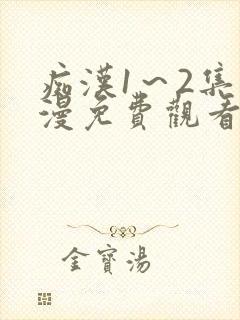 痴漢1～2集
漫免費觀看
金寶湯